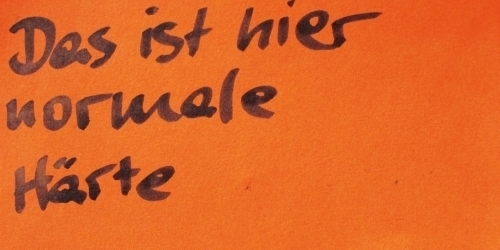 Das ist hier
normale
Härte